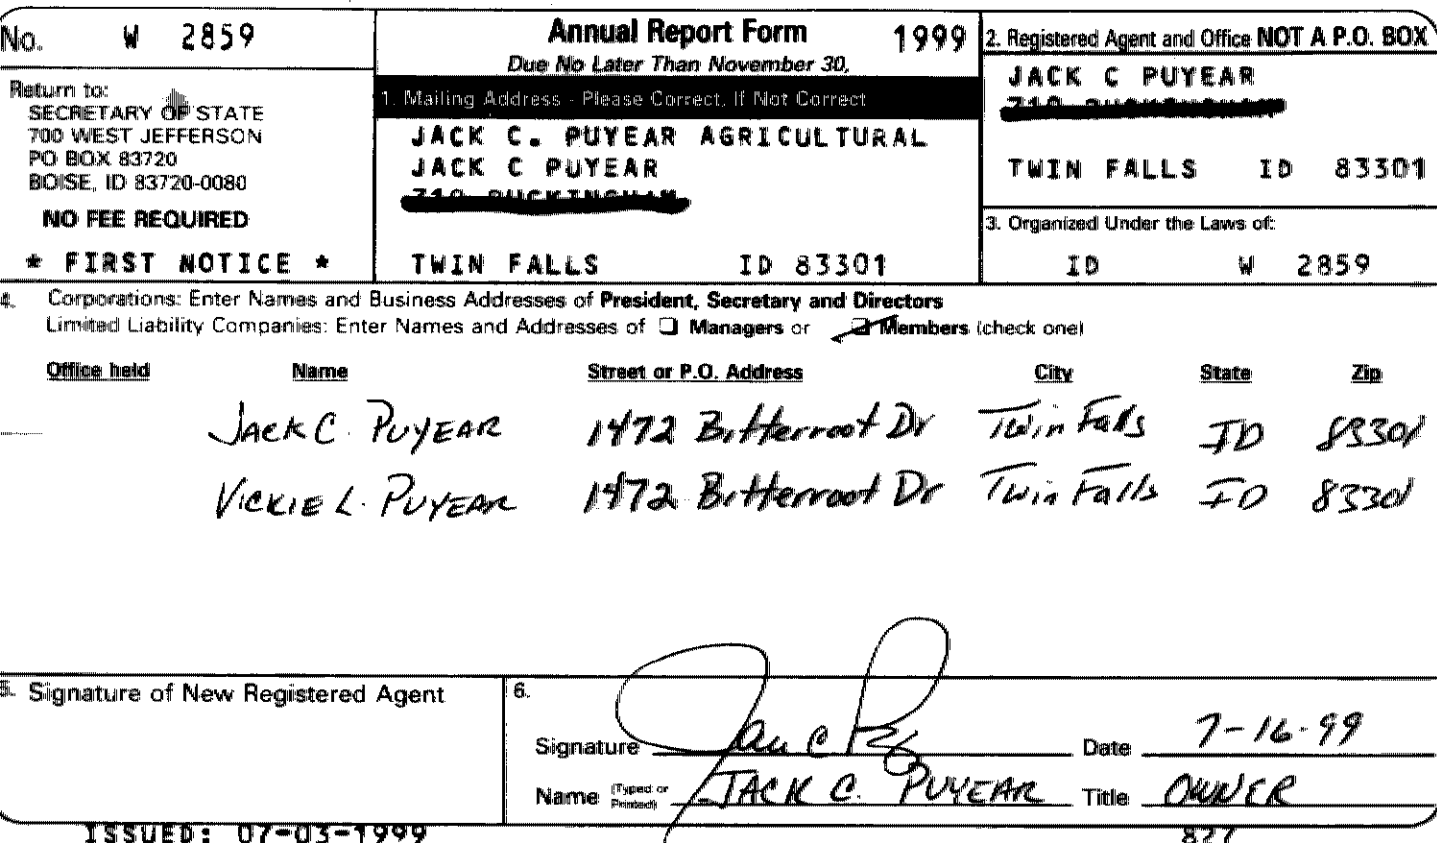 No. W 2859
Annual Report Form 1999
Due No Later Than November 30,
Return to:
SECRETARY OF STATE
700 WEST JEFFERSON
PO BOX 83720
BOISE, ID 83720-0080
NO FEE REQUIRED
* FIRST NOTICE *
1. Mailing Address - Please Correct, If Not Correct
JACK C. PUYEAR AGRICULTURAL
JACK C PUYEAR
TWIN FALLS ID 83301
2. Registered Agent and Office NOT A P.O. BOX
JACK C PUYEAR
TWIN FALLS ID 83301
3. Organized Under the Laws of:
ID W 2859
4. Corporations: Enter Names and Business Addresses of President, Secretary and Directors
Limited Liability Companies: Enter Names and Addresses of Managers or Members (check one)
Office held Name Street or P.O. Address City State Zip
Jack C. Puyear 1472 Bitterroot Dr Twin Falls ID 83301
Vickie L. Puyear 1472 Bitterroot Dr Twin Falls ID 83301
5. Signature of New Registered Agent
6.
Signature Date 7-16-99
Name (Typed or Printed) JACK C. PUYEAR Title OWNER
ISSUED: 07-03-1999 827